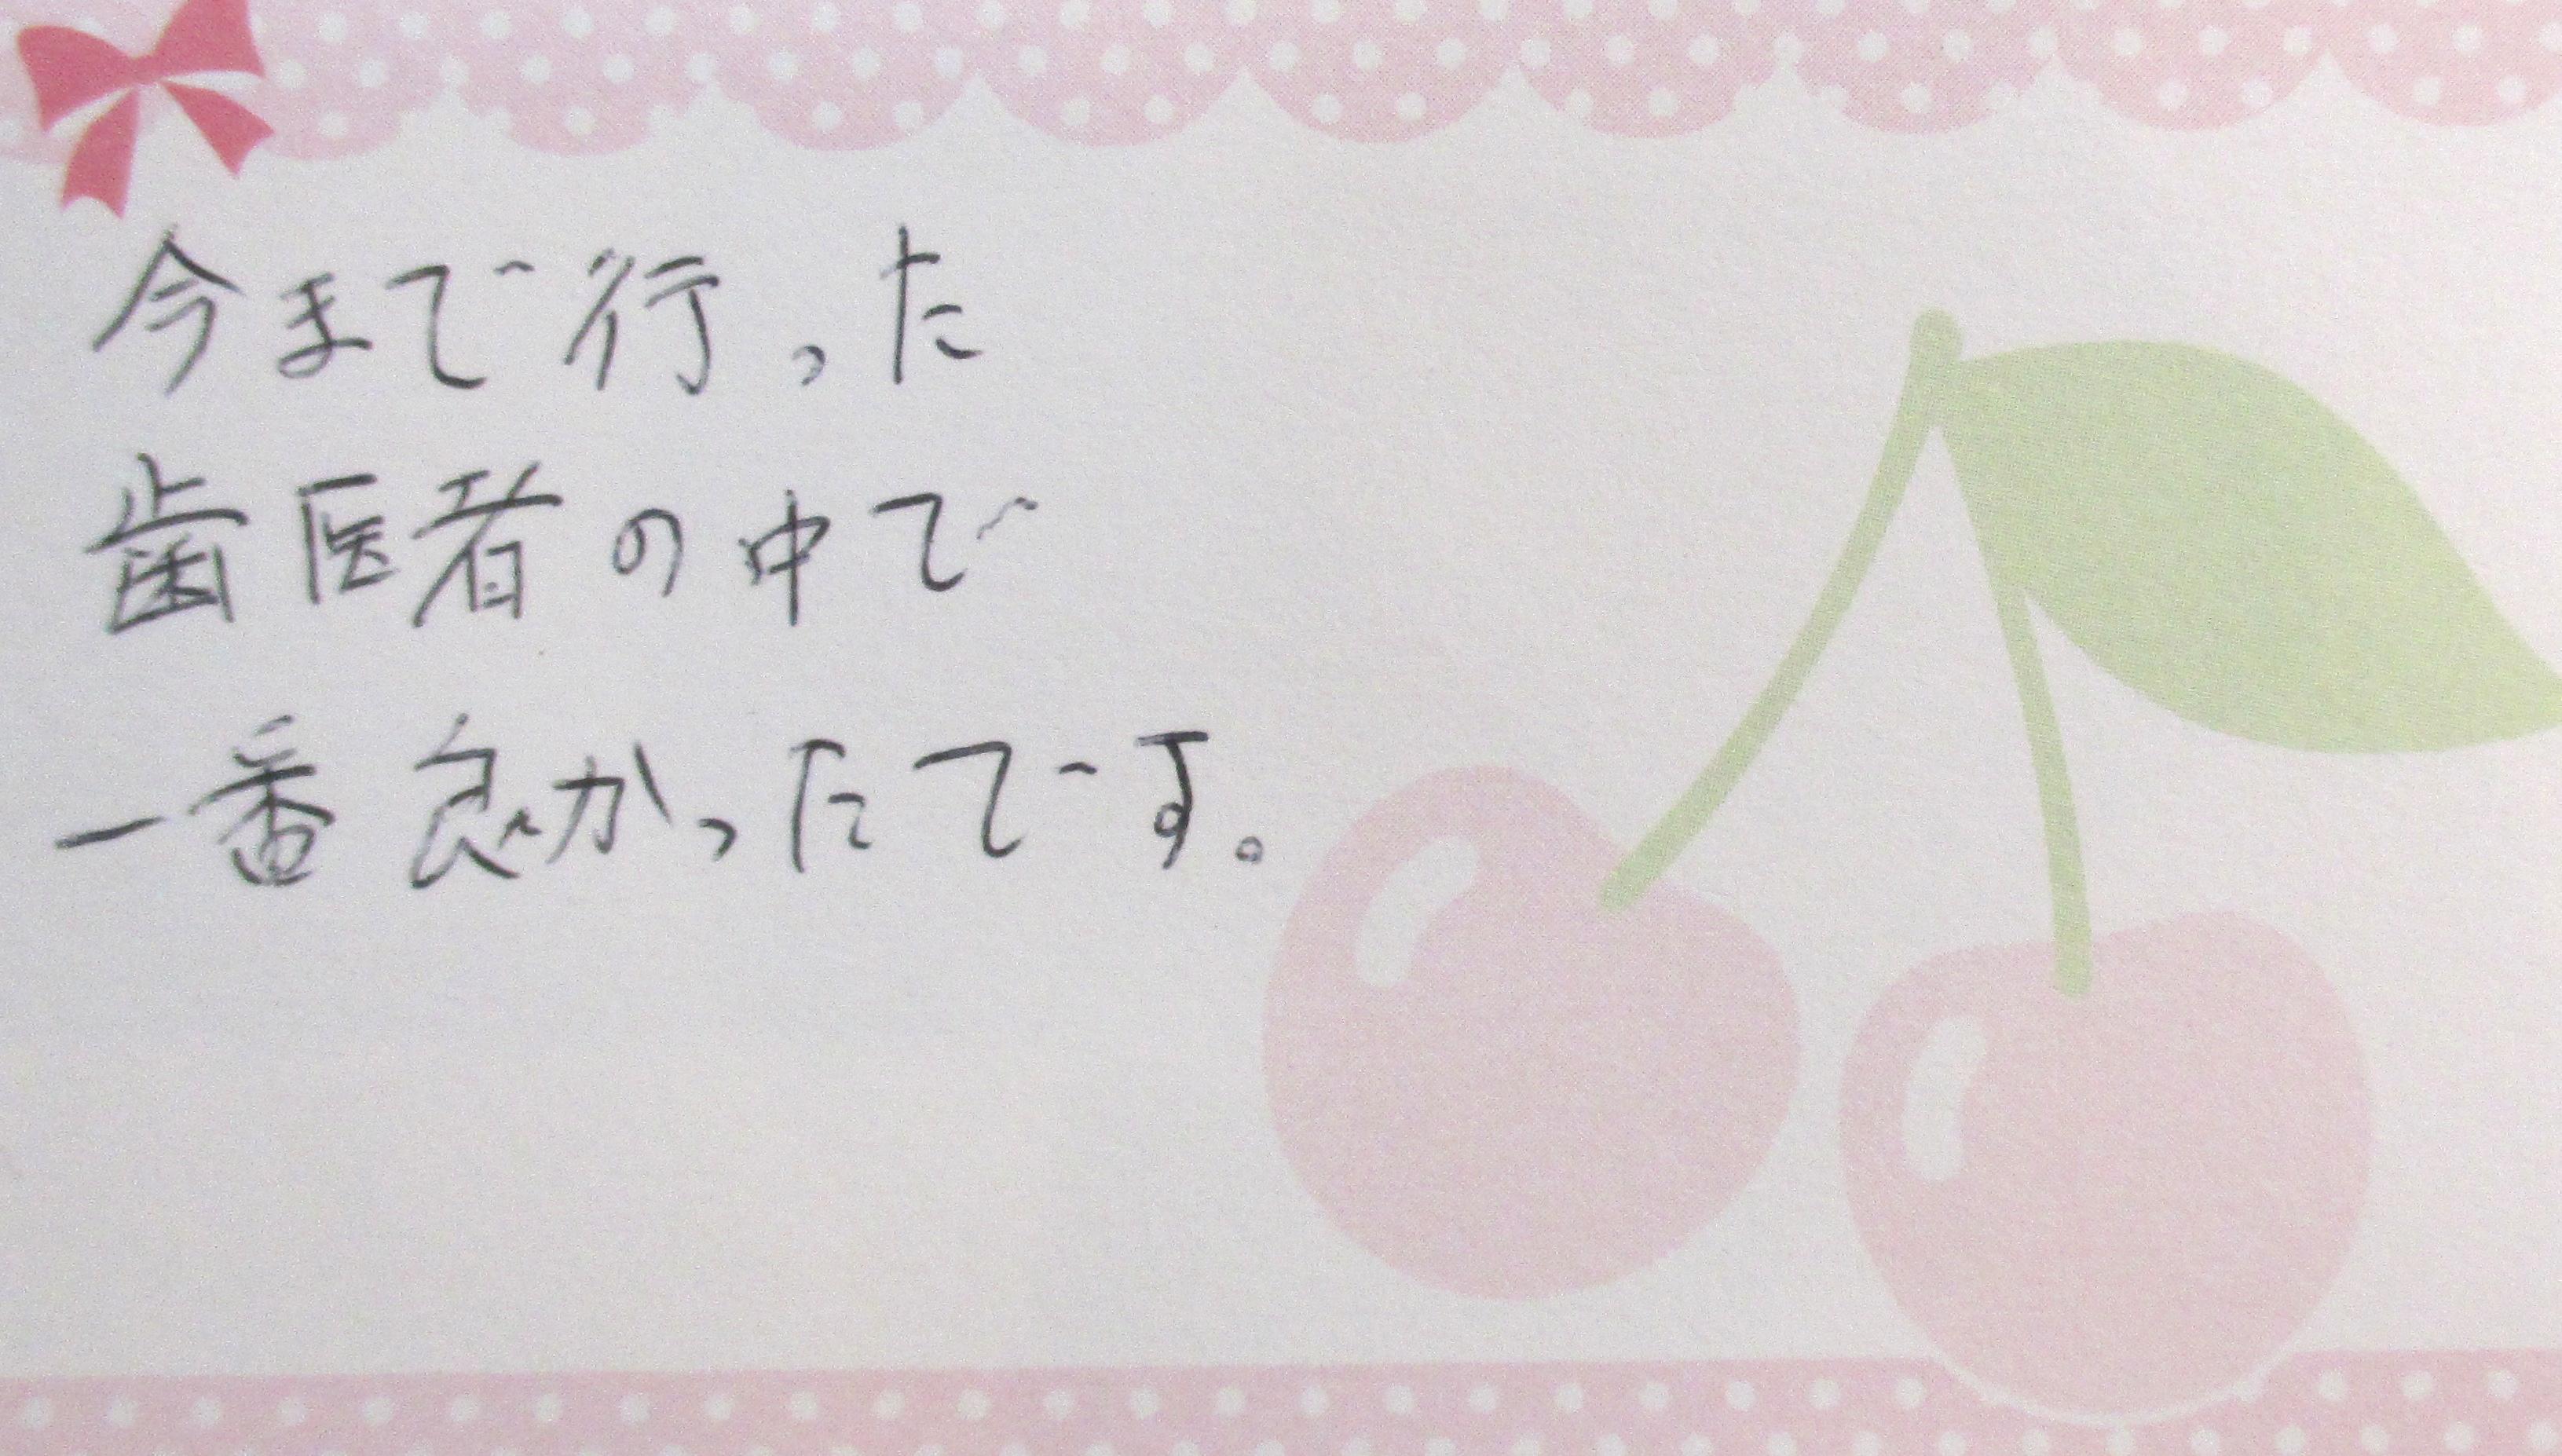 今まで行った
歯医者の中で
一番良かったです。